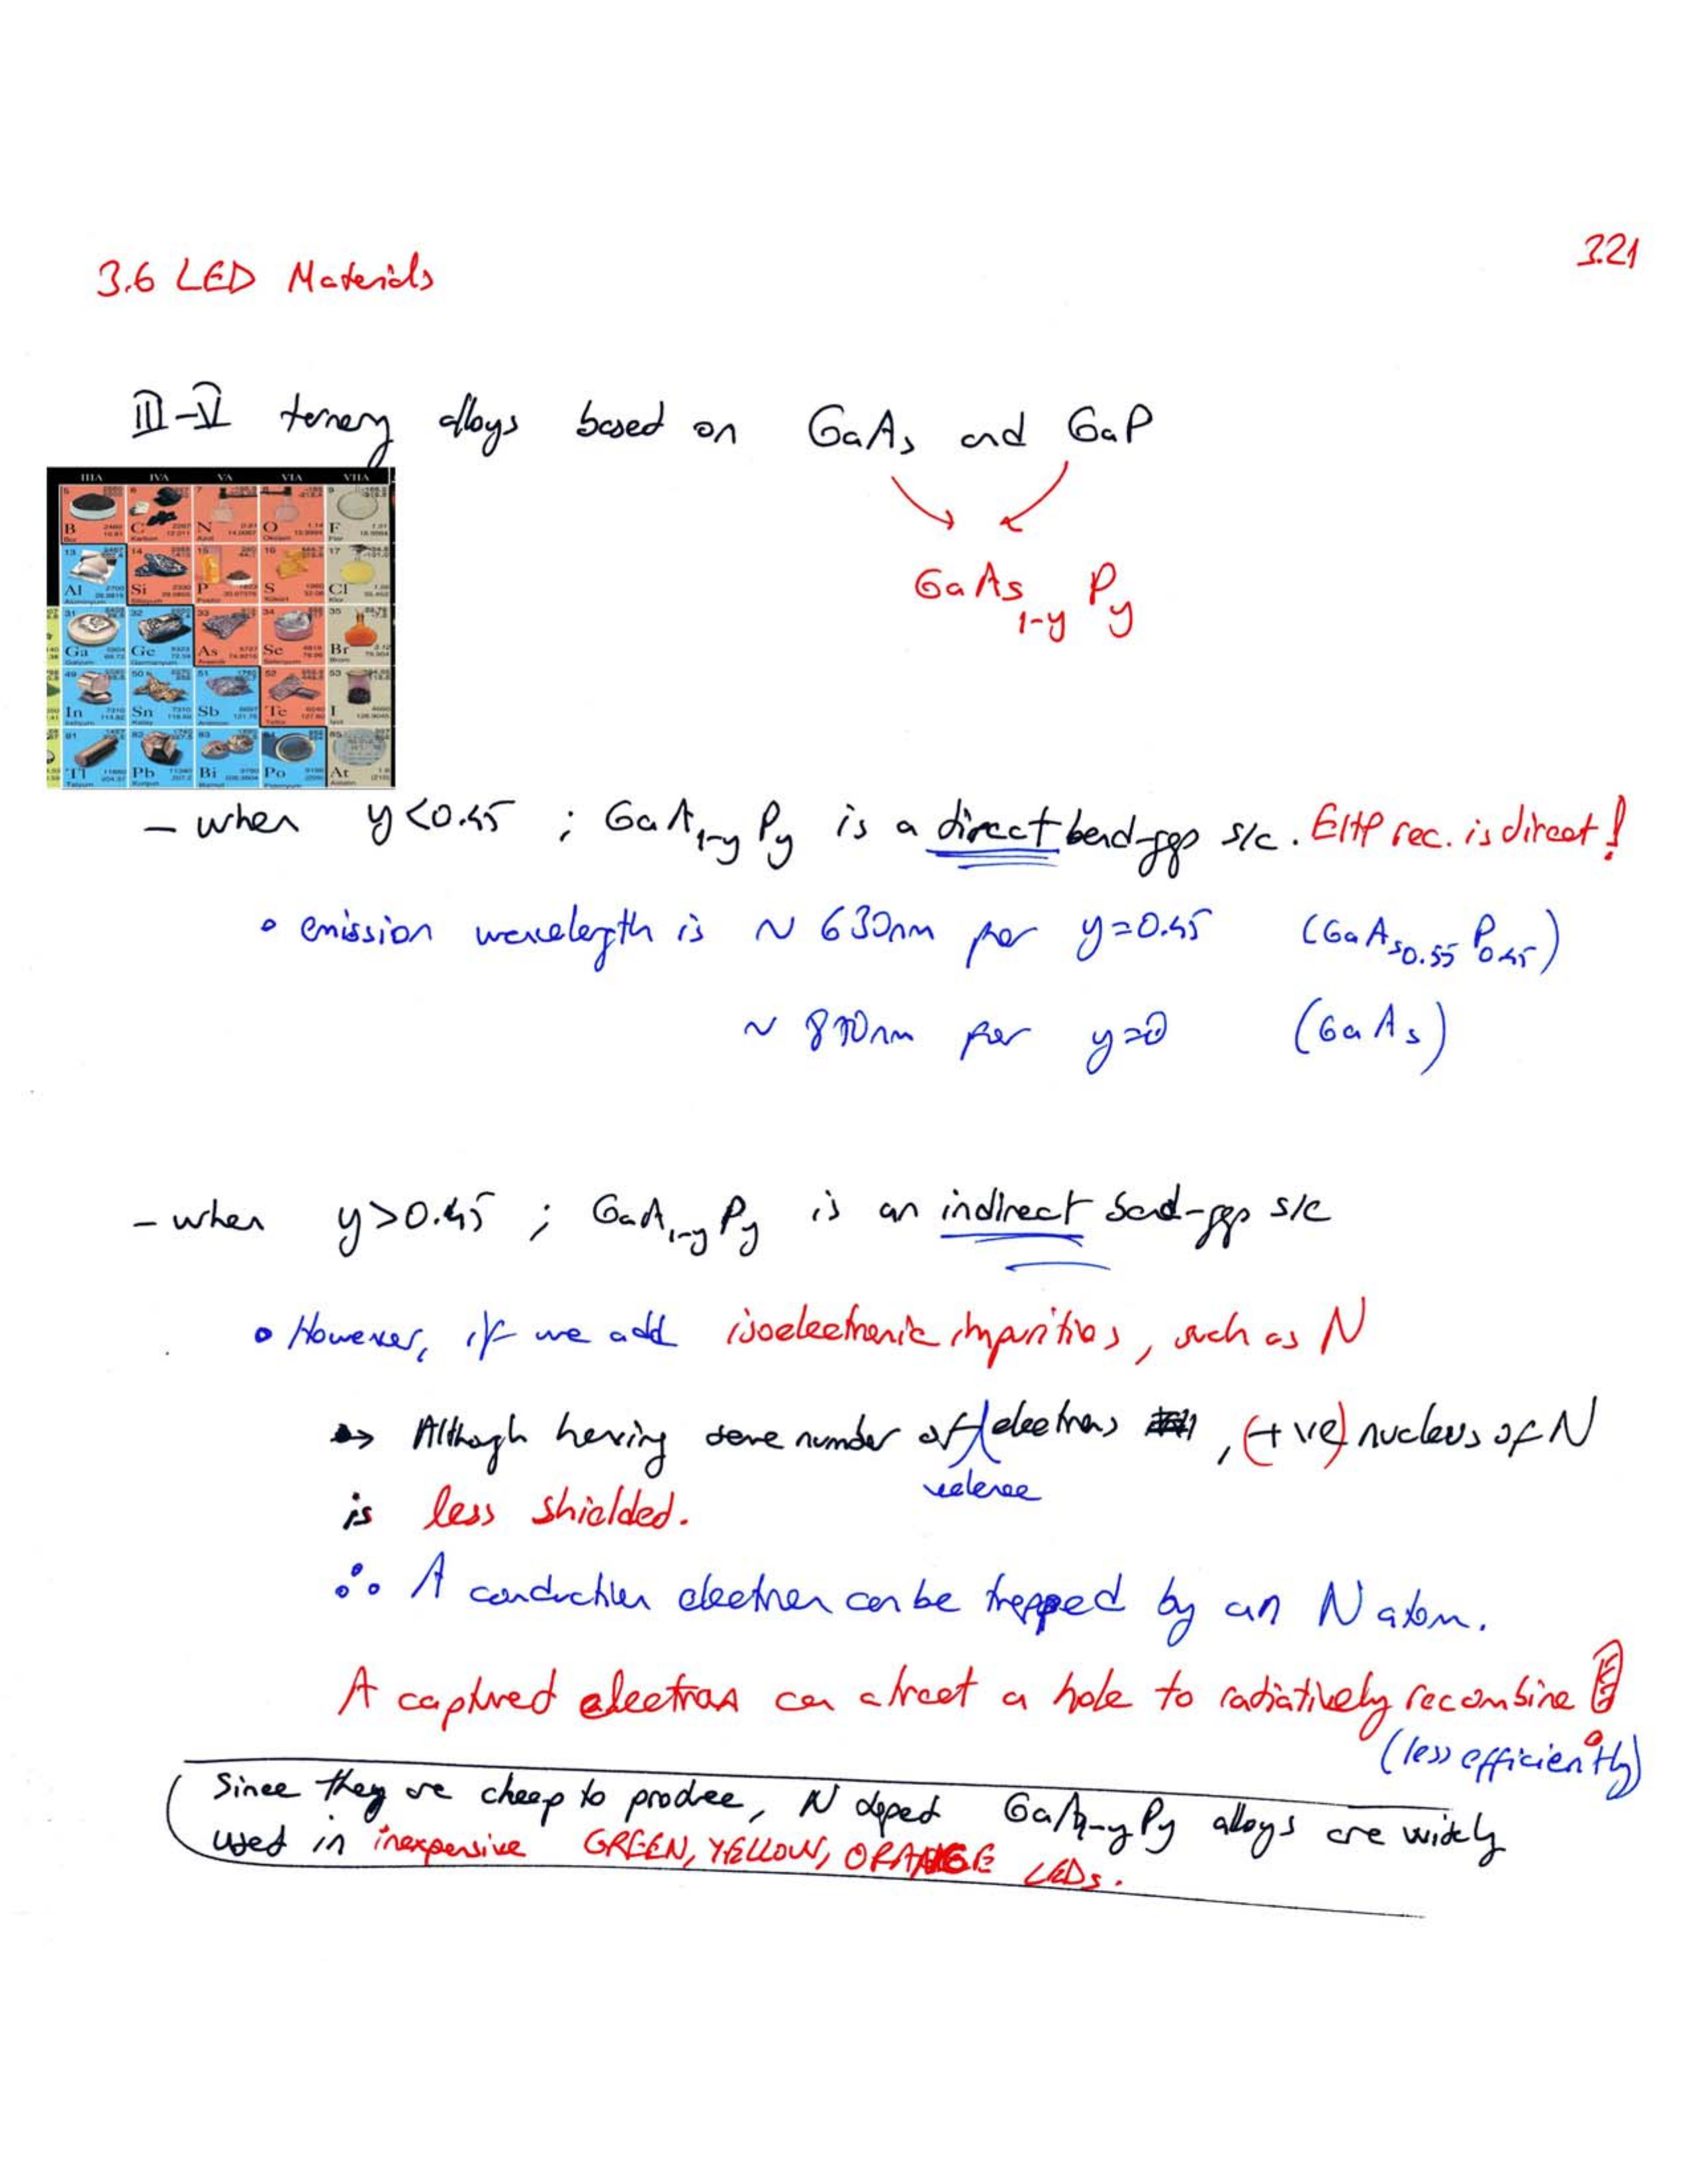 3.21
3.6 LED Materials
III-V ternary alloys based on GaAs and GaP
GaAs1-y Py
IIIA IVA VA VIA VIIA
B C N O F
Al Si P S Cl
Ga Ge As Se Br
In Sn Sb Te I
Tl Pb Bi Po At
- when y<0.45 ; GaAs1-y Py is a direct band-gap s/c. EHP rec. is direct!
• emission wavelength is ~ 630nm for y=0.45 (GaAs0.55 P0.45)
~ 870nm for y=0 (GaAs)
- when y>0.45 ; GaAs1-y Py is an indirect band-gap s/c
• However, if we add isoelectronic impurities, such as N
→ Although having same number of valence electrons, (+ve) nucleus of N
is less shielded.
∴ A conduction electron can be trapped by an N atom.
A captured electron can attract a hole to radiatively recombine!
(less efficiently)
Since they are cheap to produce, N doped GaAs1-y Py alloys are widely
used in inexpensive GREEN, YELLOW, ORANGE LEDs.